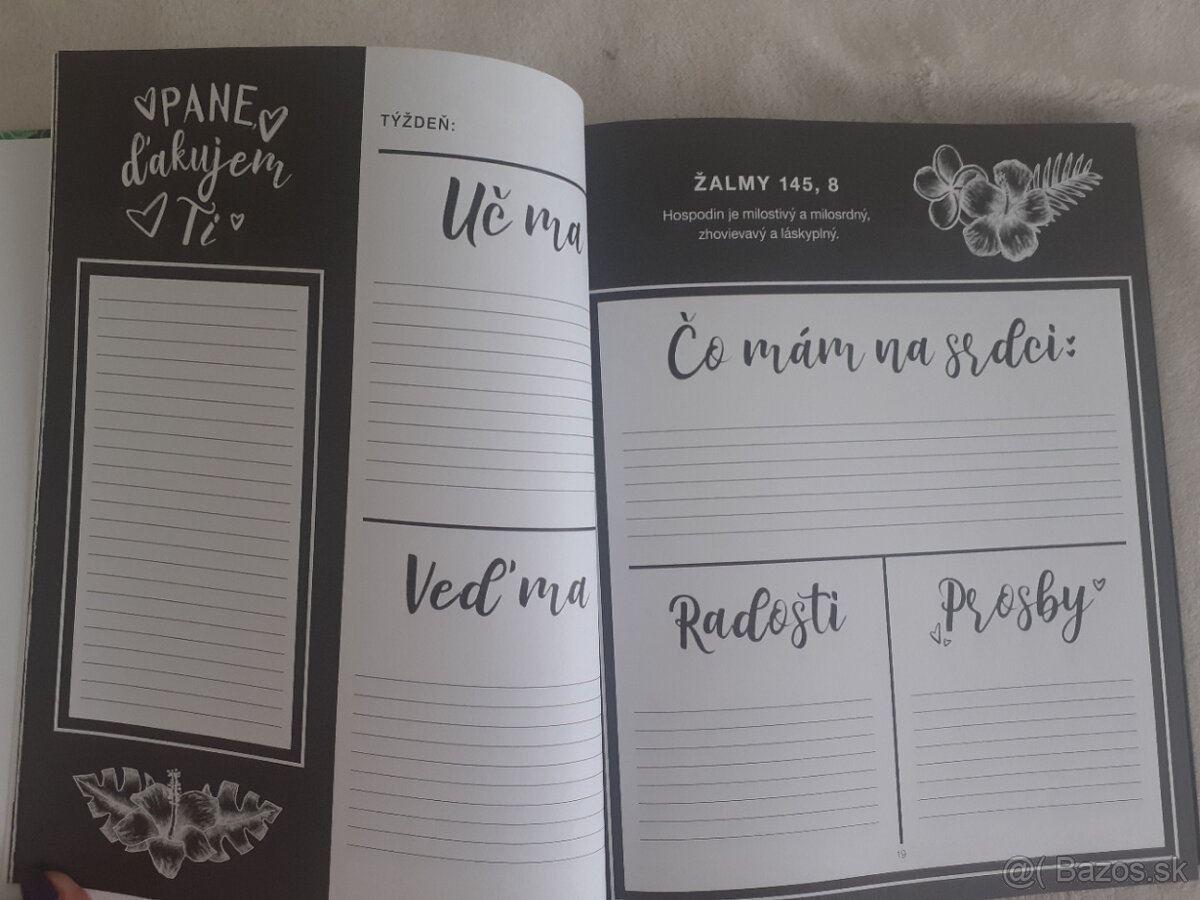 PANE,
ďakujem
Ti
TÝŽDEŇ:
Uč ma
Veď ma
ŽALMY 145, 8
Hospodin je milostivý a milosrdný,
zhovievavý a láskyplný.
Čo mám na srdci:
Radosti
Prosby
19
@( Bazos.sk